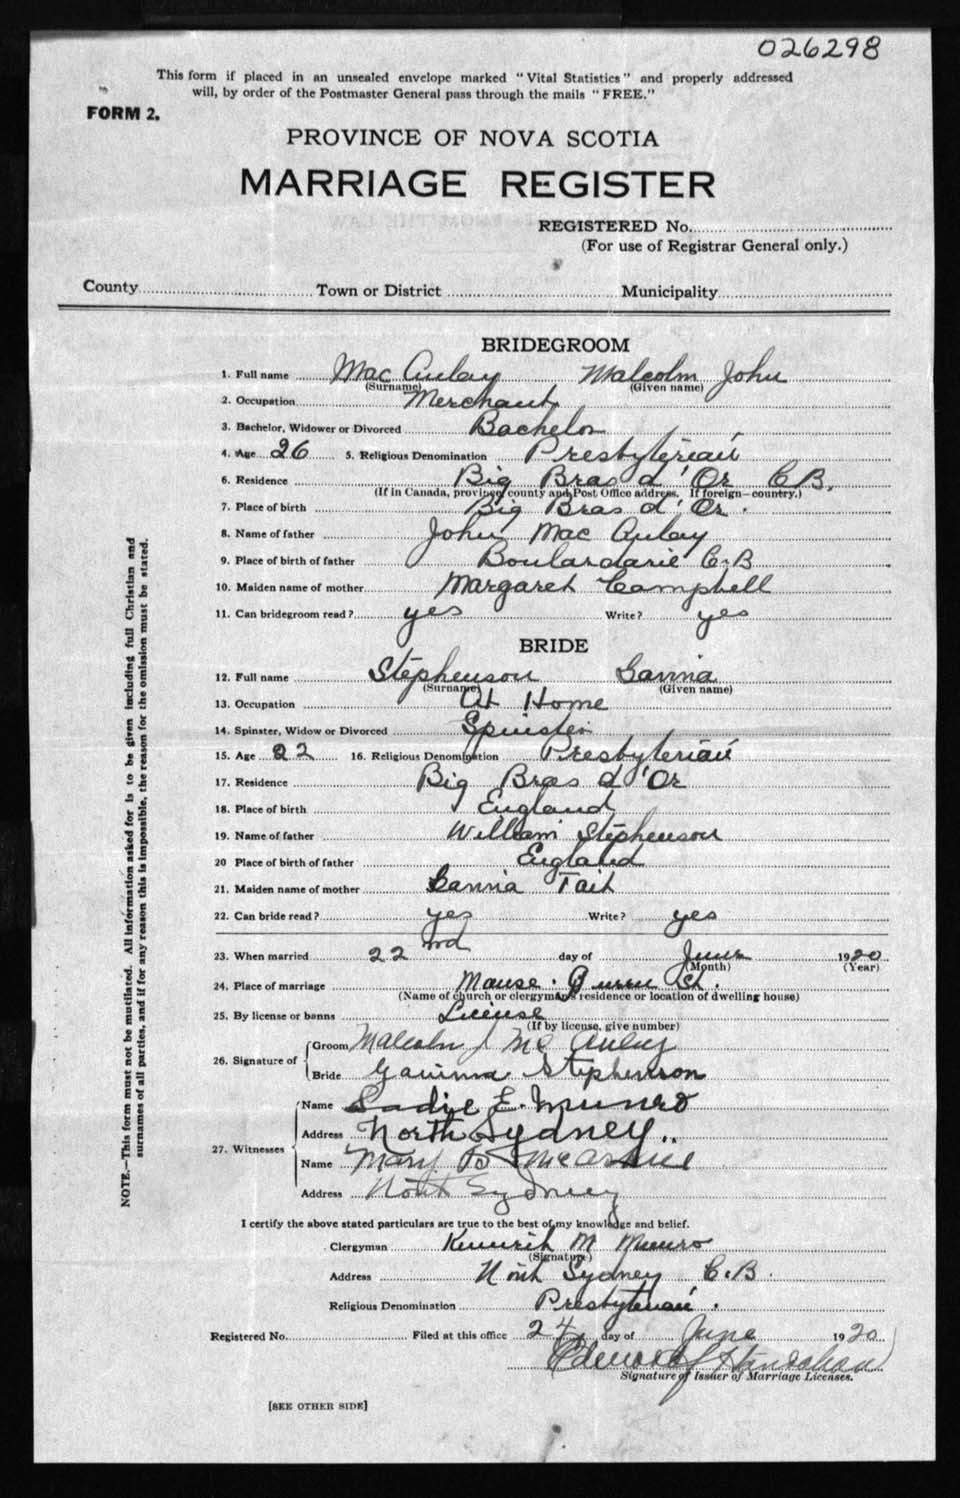 026298
This form if placed in an unsealed envelope marked "Vital Statistics" and properly addressed
will, by order of the Postmaster General pass through the mails "FREE."
FORM 2.
PROVINCE OF NOVA SCOTIA
MARRIAGE REGISTER
REGISTERED No.
(For use of Registrar General only.)
County Town or District Municipality
BRIDEGROOM
1. Full name Mac Aulay Malcolm John
(Surname) (Given name)
2. Occupation Merchant
3. Bachelor, Widower or Divorced Bachelor
4. Age 26 5. Religious Denomination Presbyterian
6. Residence Big Bras d'Or C B.
(If in Canada, province, county and Post Office address. If foreign—country.)
7. Place of birth Big Bras d'Or.
8. Name of father John Mac Aulay
9. Place of birth of father Boulardarie C.B
10. Maiden name of mother Margaret Campbell
11. Can bridegroom read? yes Write? yes
BRIDE
12. Full name Stephenson
(Surname) (Given name)
13. Occupation At Home
14. Spinster, Widow or Divorced Spinster
15. Age 22 16. Religious Denomination Presbyterian
17. Residence Big Bras d'Or
18. Place of birth England
19. Name of father William Stephenson
20 Place of birth of father England
21. Maiden name of mother Tait
22. Can bride read? yes Write? yes
23. When married 22nd day of June 1920
(Month) (Year)
24. Place of marriage Manse. Queen St.
(Name of church or clergyman's residence or location of dwelling house)
25. By license or banns License
(If by license, give number)
26. Signature of Groom Malcolm J Mc Aulay
Bride Stephenson
27. Witnesses Name Sadie E. Munro
Address North Sydney..
Name Mary B
Address North Sydney
I certify the above stated particulars are true to the best of my knowledge and belief.
Clergyman M Munro
(Signature)
Address North Sydney C.B.
Religious Denomination Presbyterian.
Registered No. Filed at this office 24 day of June 1920
Signature of Issuer of Marriage Licenses.
[SEE OTHER SIDE]
NOTE.—This form must not be mutilated. All information asked for is to be given including full Christian and
surnames of all parties, and if for any reason this is impossible, the reason for the omission must be stated.